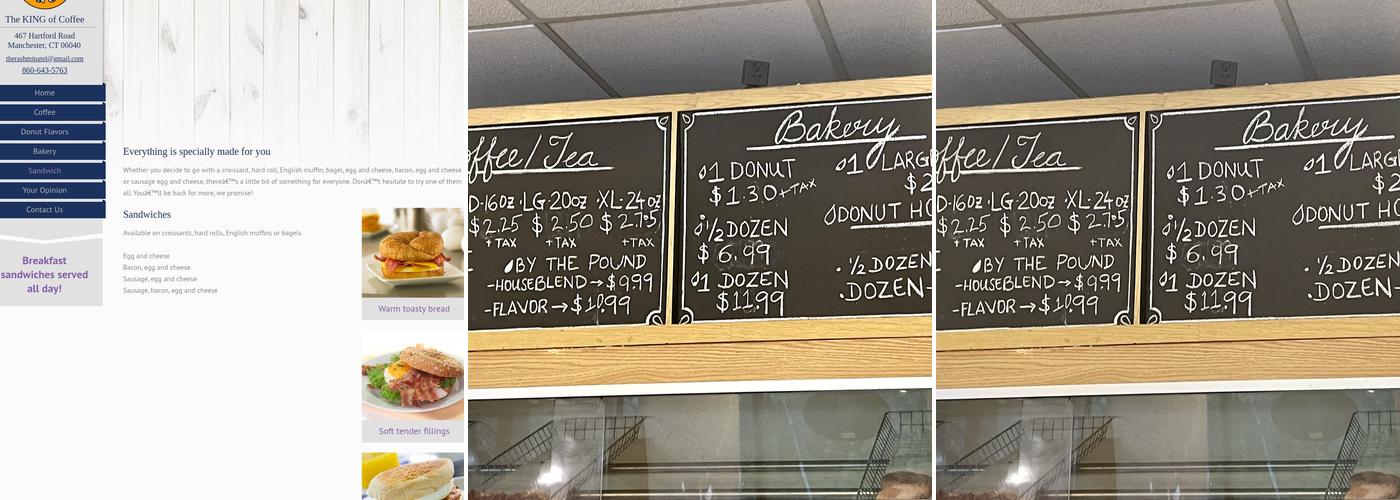 The KING of Coffee
467 Hartford Road
Manchester, CT 06040
therashmipatel@gmail.com
860-643-5763
Home
Coffee
Donut Flavors
Bakery
Sandwich
Your Opinion
Contact Us
Breakfast
sandwiches served
all day!
Everything is specially made for you
Whether you decide to go with a croissant, hard roll, English muffin, bagel, egg and cheese, bacon, egg and cheese
or sausage egg and cheese, thereâ€™s a little bit of something for everyone. Donâ€™t hesitate to try one of them
all. Youâ€™ll be back for more, we promise!
Sandwiches
Available on croissants, hard rolls, English muffins or bagels
Egg and cheese
Bacon, egg and cheese
Sausage, egg and cheese
Sausage, bacon, egg and cheese
Warm toasty bread
Soft tender fillings
offee/Tea
D-16oz · LG-20oz · XL-24oz
$2.25 $2.50 $2.75
+TAX +TAX +TAX
BY THE POUND
-HOUSEBLEND→$9.99
-FLAVOR→$10.99
Bakery
1 DONUT
$1.30+TAX
1/2 DOZEN
$6.99
1 DOZEN
$11.99
1 LARG
$2
DONUT HO
· 1/2 DOZEN
· DOZEN-
ffee/Tea
D-16oz · LG-20oz · XL-24oz
$2.25 $2.50 $2.75
+TAX +TAX +TAX
BY THE POUND
-HOUSEBLEND→$9.99
-FLAVOR→$10.99
Bakery
1 DONUT
$1.30+TAX
1/2 DOZEN
$6.99
1 DOZEN
$11.99
1 LARG
$2
DONUT HO
· 1/2 DOZEN
· DOZEN-